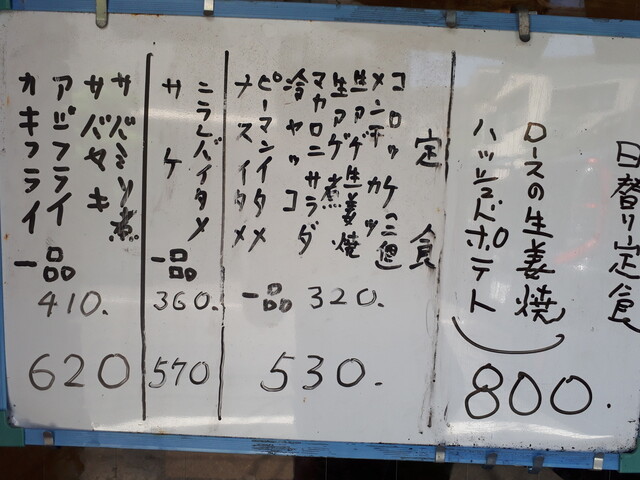 日替り定食
ロースの生姜焼
ハッシュドポテト
800.
定食
コロッケ(三個)
メンチカツ
生アゲ生姜焼
生アゲ煮
マカロニサラダ
冷ヤッコ
ピーマンイタメ
ナスイタメ
一品 320.
530.
ニラレバイタメ
サケ
一品
360.
570
サバミソ煮
サバヤキ
アジフライ
カキフライ
一品
410.
620